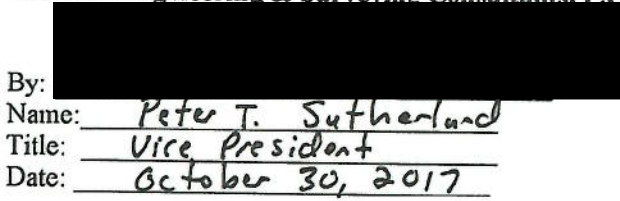 By:
Name: Peter T. Sutherland
Title: Vice President
Date: October 30, 2017